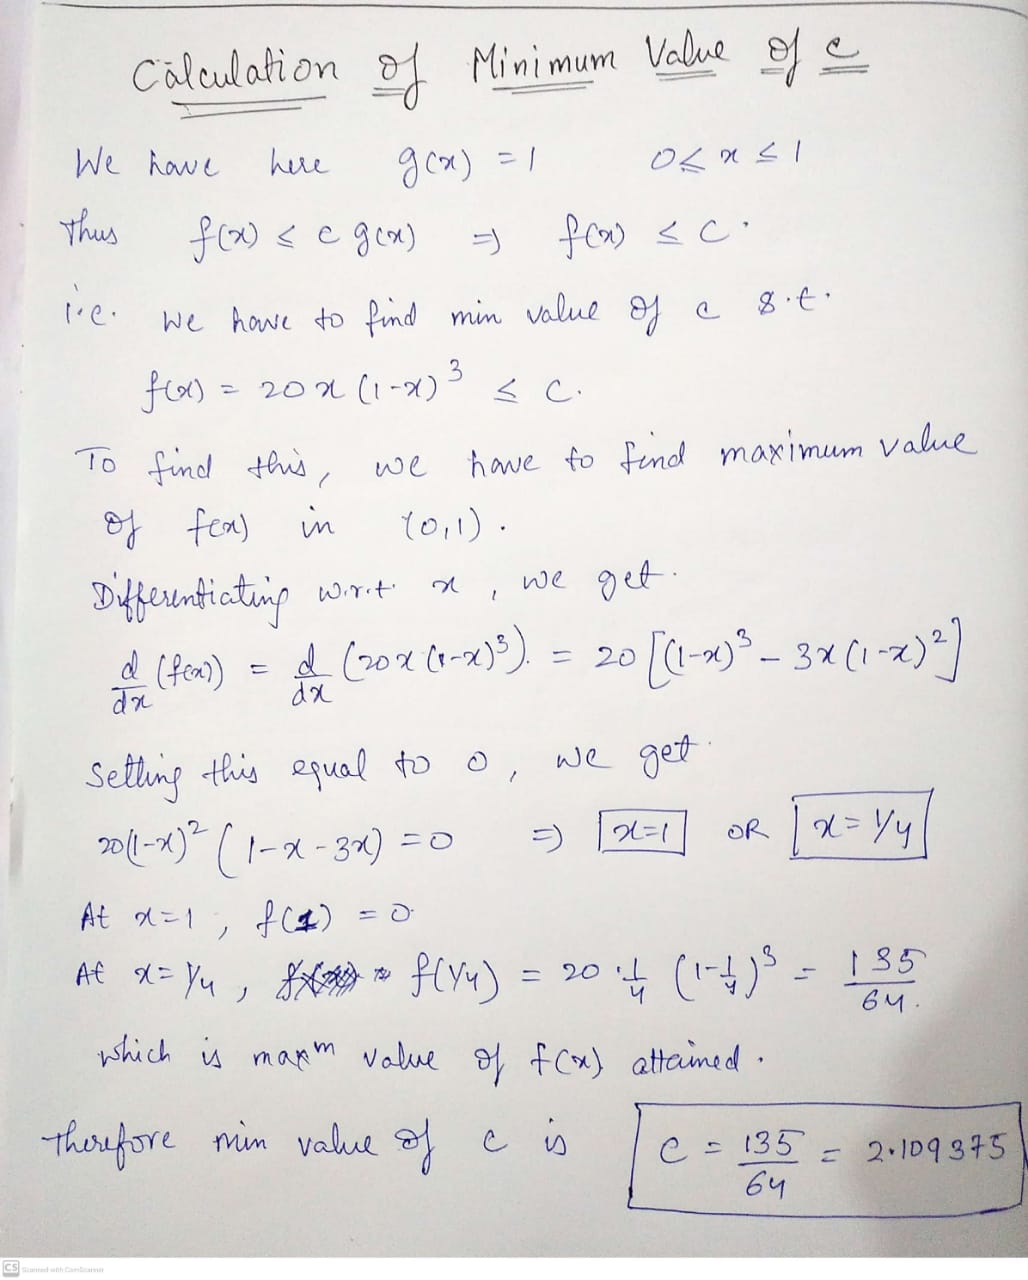 Calculation of Minimum Value of c
We have here g(x) = 1 0 ≤ x ≤ 1
Thus f(x) ≤ c g(x) ⇒ f(x) ≤ c.
i.e. we have to find min value of c s.t.
f(x) = 20x(1-x)³ ≤ c.
To find this, we have to find maximum value
of f(x) in (0,1).
Differentiating w.r.t. x, we get.
d/dx (f(x)) = d/dx (20x(1-x)³). = 20[(1-x)³ - 3x(1-x)²]
Setting this equal to 0, we get.
20(1-x)² (1-x-3x) = 0 ⇒ x=1 OR x=1/4
At x=1, f(1) = 0.
At x=1/4, f(1/4) = 20·1/4 (1-1/4)³ = 135/64.
which is maxm value of f(x) attained.
Therefore min value of c is c = 135/64 = 2.109375
CS Scanned with CamScanner